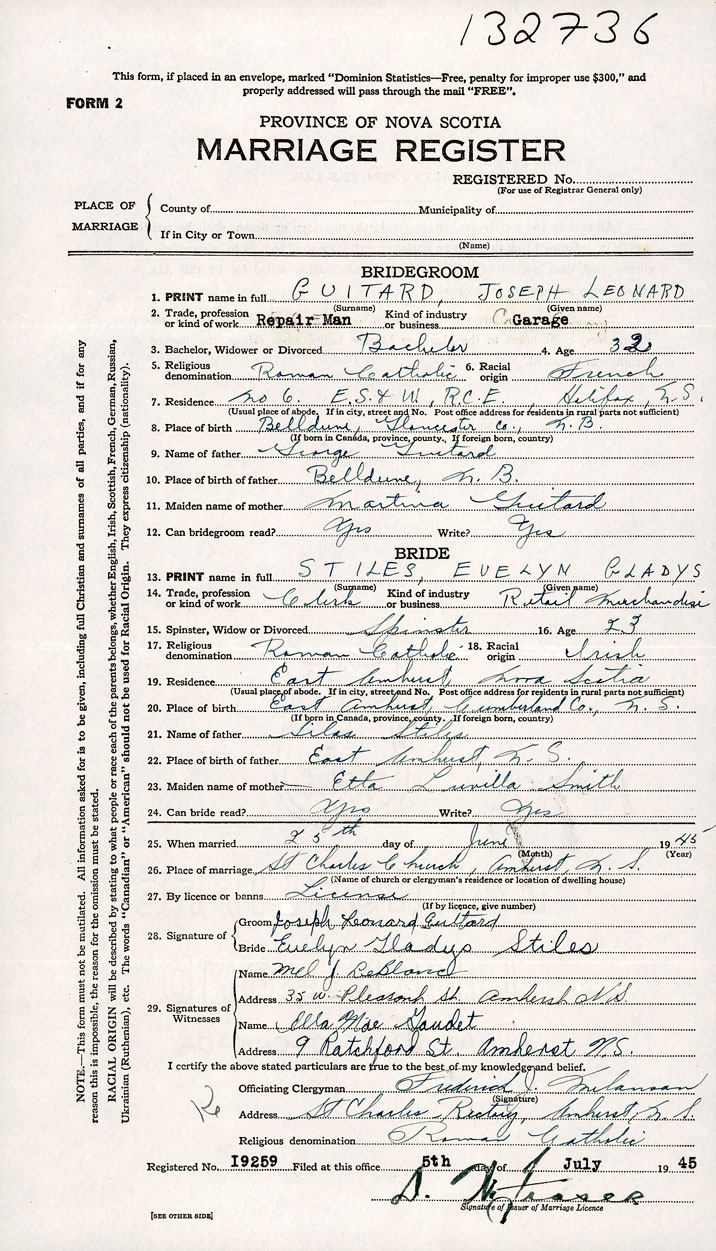 132736
This form, if placed in an envelope, marked "Dominion Statistics—Free, penalty for improper use $300," and
properly addressed will pass through the mail "FREE".
FORM 2
PROVINCE OF NOVA SCOTIA
MARRIAGE REGISTER
REGISTERED No.
(For use of Registrar General only)
PLACE OF MARRIAGE
County of Municipality of
If in City or Town
(Name)
BRIDEGROOM
1. PRINT name in full GUITARD, JOSEPH LEONARD
(Surname) (Given name)
2. Trade, profession or kind of work Repair Man Kind of industry or business Garage
3. Bachelor, Widower or Divorced Bachelor 4. Age 32
5. Religious denomination Roman Catholic 6. Racial origin French
7. Residence No 6 E.S. & W., R.C.E., Halifax, N.S.
(Usual place of abode. If in city, street and No. Post office address for residents in rural parts not sufficient)
8. Place of birth Belldune, Gloucester Co., N.B.
(If born in Canada, province, county. If foreign born, country)
9. Name of father George Guitard
10. Place of birth of father Belldune, N.B.
11. Maiden name of mother Martina Guitard
12. Can bridegroom read? Yes Write? Yes
BRIDE
13. PRINT name in full STILES, EVELYN GLADYS
(Surname) (Given name)
14. Trade, profession or kind of work Clerk Kind of industry or business Retail Merchandise
15. Spinster, Widow or Divorced Spinster 16. Age 23
17. Religious denomination Roman Catholic 18. Racial origin Irish
19. Residence East Amherst, Nova Scotia
(Usual place of abode. If in city, street and No. Post office address for residents in rural parts not sufficient)
20. Place of birth East Amherst, Cumberland Co., N.S.
(If born in Canada, province, county. If foreign born, country)
21. Name of father Silas Stiles
22. Place of birth of father East Amherst, N.S.
23. Maiden name of mother Etta Luvilla Smith
24. Can bride read? Yes Write? Yes
25. When married 25th day of June 1945
(Month) (Year)
26. Place of marriage St Charles Church, Amherst N.S.
(Name of church or clergyman's residence or location of dwelling house)
27. By licence or banns License
(If by licence, give number)
28. Signature of Groom Joseph Leonard Guitard
Bride Evelyn Gladys Stiles
29. Signatures of Witnesses
Name Mel J LeBlanc
Address 35 W. Pleasant St. Amherst N.S.
Name Ella Mae Gaudet
Address 9 Ratchford St. Amherst N.S.
I certify the above stated particulars are true to the best of my knowledge and belief.
Officiating Clergyman Frederick J. Melanson
(Signature)
Address St Charles Rectory, Amherst, N.S.
Religious denomination Roman Catholic
Registered No. 19259 Filed at this office 5th day of July 1945
Signature of Issuer of Marriage Licence
[SEE OTHER SIDE]
NOTE.—This form must not be mutilated. All information asked for is to be given, including full Christian and surnames of all parties, and if for any
reason this is impossible, the reason for the omission must be stated.
RACIAL ORIGIN will be described by stating to what people or race each of the parents belongs, whether English, Irish, Scottish, French, German, Russian,
Ukrainian (Ruthenian), etc. The words "Canadian" or "American" should not be used for Racial Origin. They express citizenship (nationality).